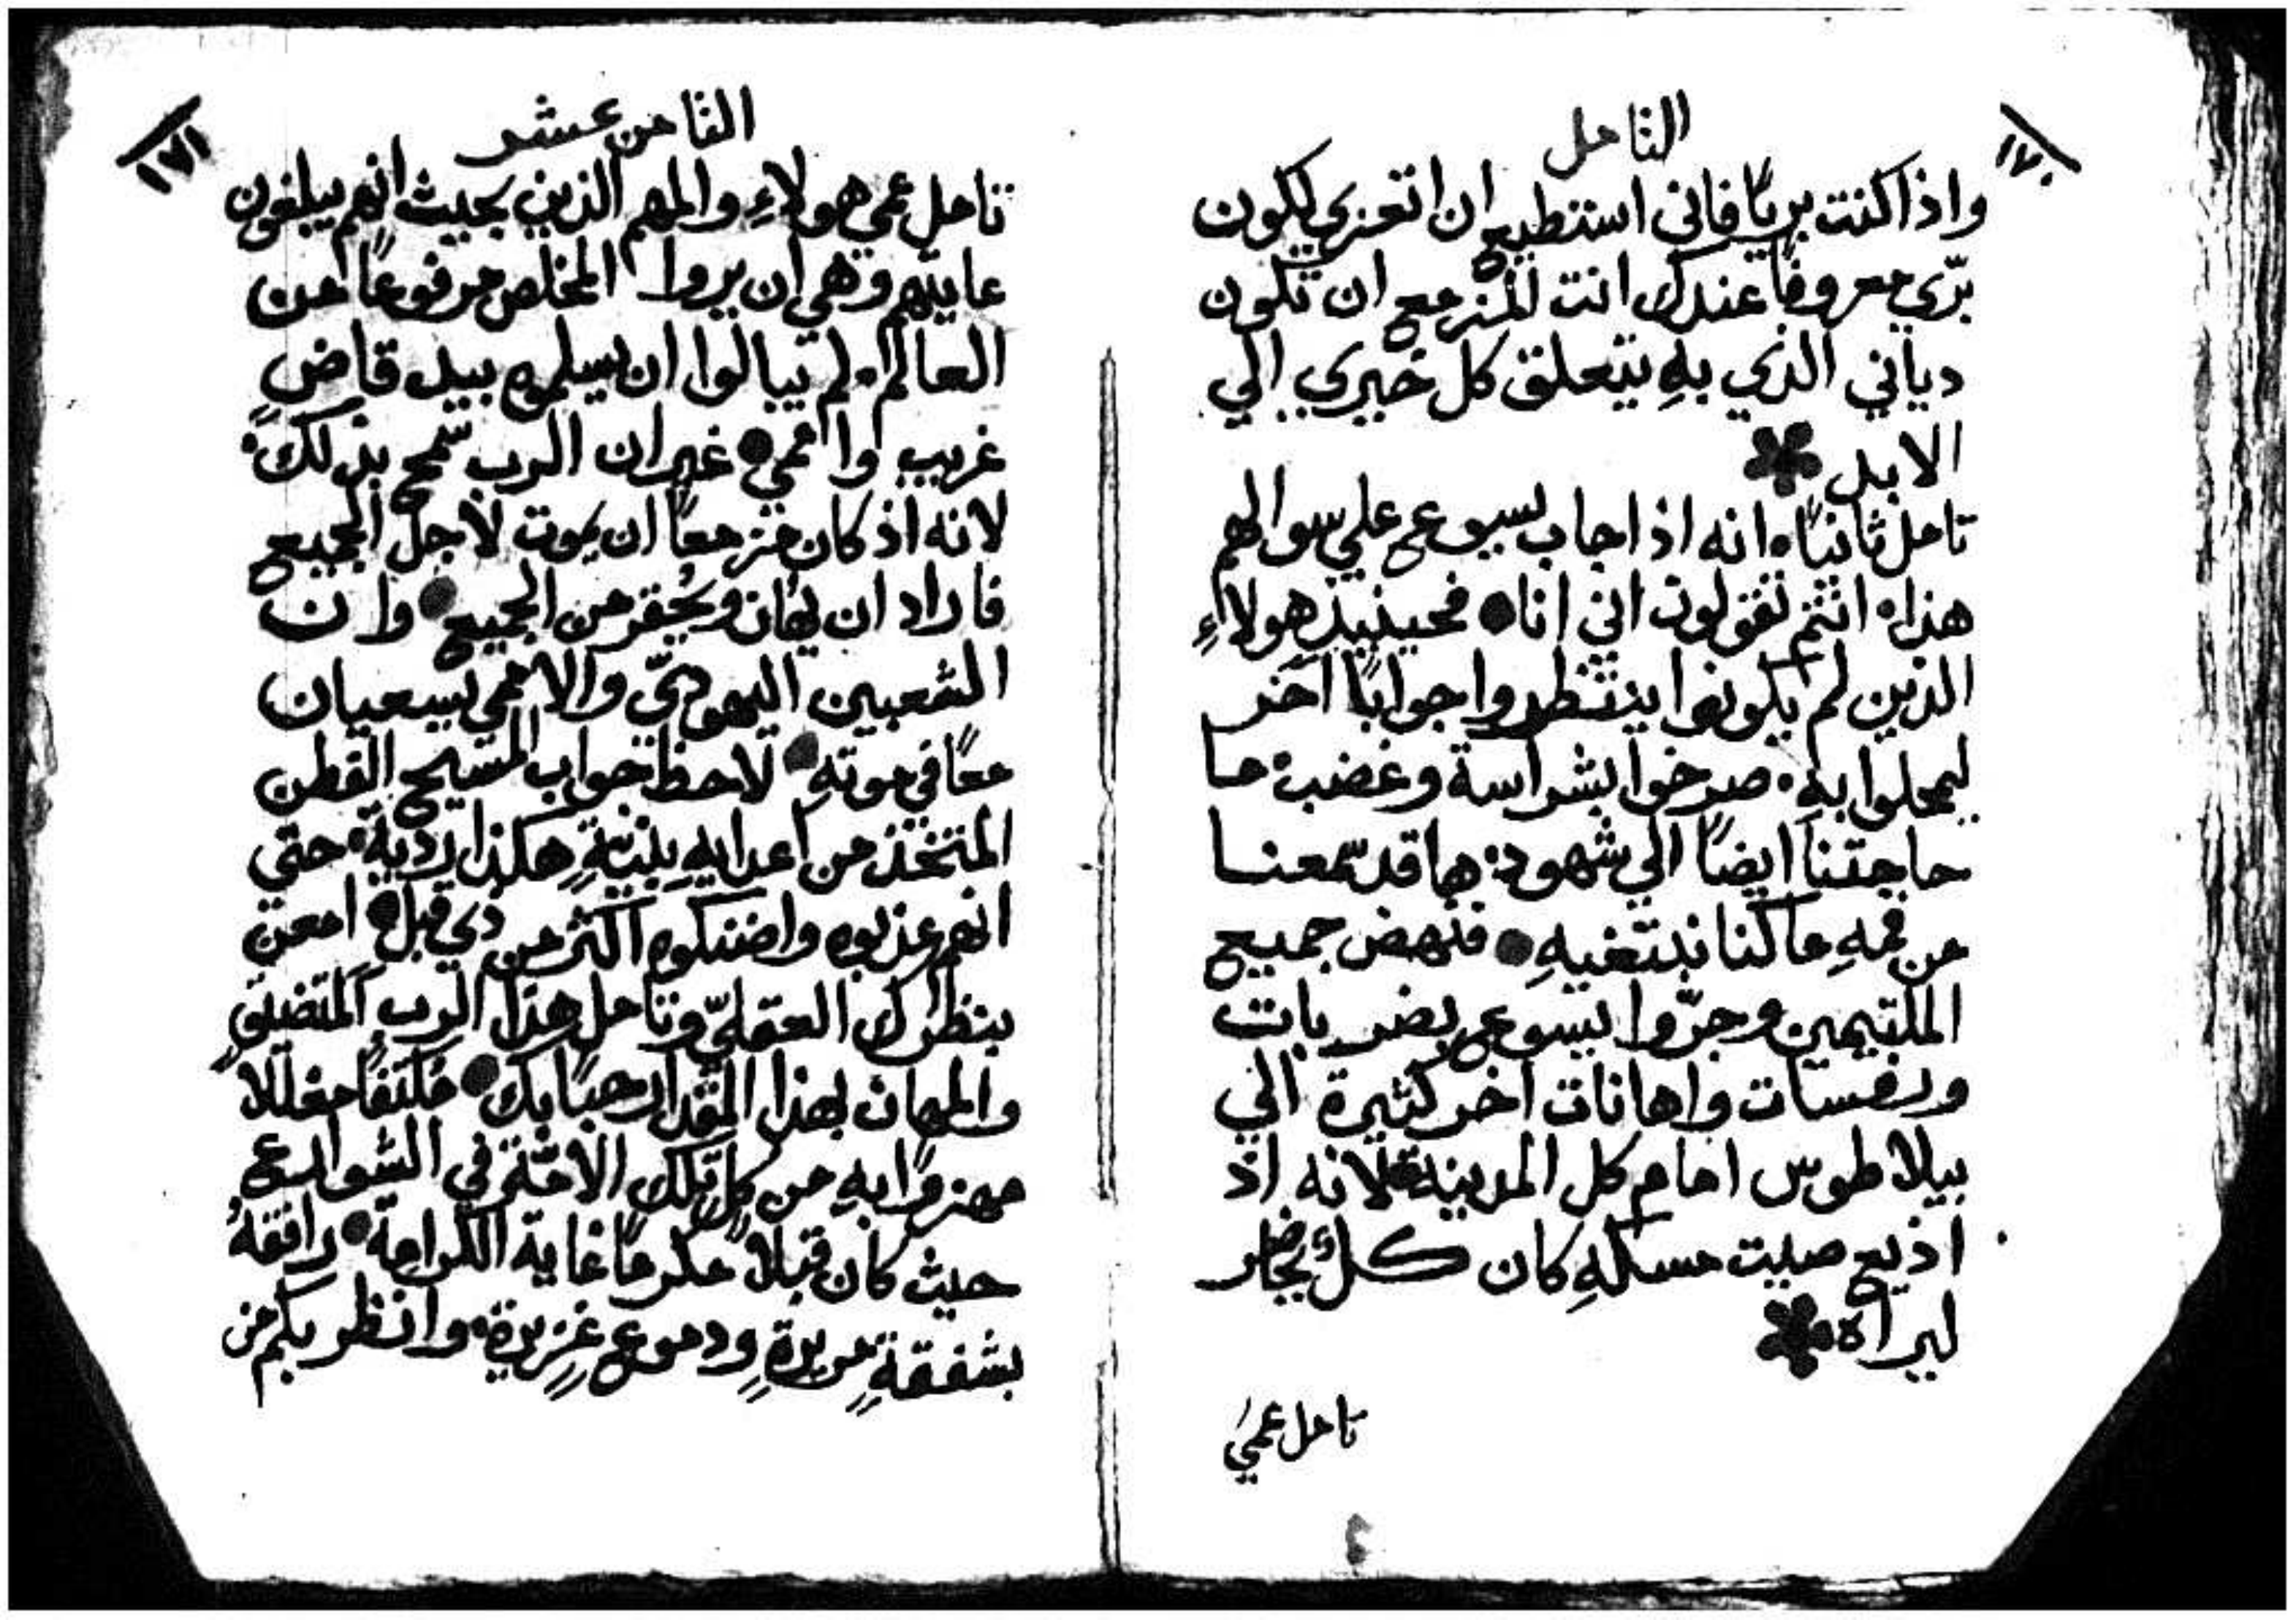 ١٧٠
التامل
واذا كنت بريًا فاني استطيع ان اتعزي لكون
برّي معروفًا عندك انت المزمع ان تكون
دياني الذي بهِ يتعلق كل خيري الي
الابد
تامل ثانيًا انه اذ اجاب يسوع علي سوالهم
هذا انتم تقولون اني انا فحينيذٍ هولاءِ
الذين لم يكونوا ينتظروا جوابًا اخر
ليمحلوا به صرخوا بشراسة وغضب ما
حاجتنا ايضًا الي شهود ها قد سمعنا
من فمهِ ما كنا نبتغيهِ فنهض جميع
الملتيمين وجرّوا يسوع بضربات
ورفسات واهانات اخر كثيرة الي
بيلاطوس امام كل المدينة لانه اذ
اذيع صيت مسكهِ كان كلٌ يحاضر
ليراه
تامل عمي
١٧١
الثامن عشر
تامل عمي هولاءِ والمهم الذين بحيث انهم يبلغون
غايتهم وهي ان يروا المخلص مرفوعًا من
العالم لم يبالوا ان يسلموه بيد قاضٍ
غريب واممي غير ان الرب سمح بذلك
لانه اذ كان مزمعًا ان يموت لاجل الجميع
فاراد ان يُهان ويُحتقر من الجميع وان
الشعبين اليهوديّ والاممي يسعيان
معًا في موتهِ لاحظ جواب المسيح الفطن
المتخذ من اعدايهِ بنيةٍ هكذا ردية حتي
انهم عذبوه واضنكوه اكثر من ذي قبل امعن
بنظرك العقليّ وتامل هذا الرب المتضيق
والمهان بهذا المقدار حبًا بك مكتفًا مغللاً
مهزوًا بهِ من كل تلك الامة في الشوارع
حيث كان قبلاً مكرمًا غاية الكرامة رافقهُ
بشفقةٍ مريرةٍ ودموعٍ غزيرةٍ وانظر بكم من